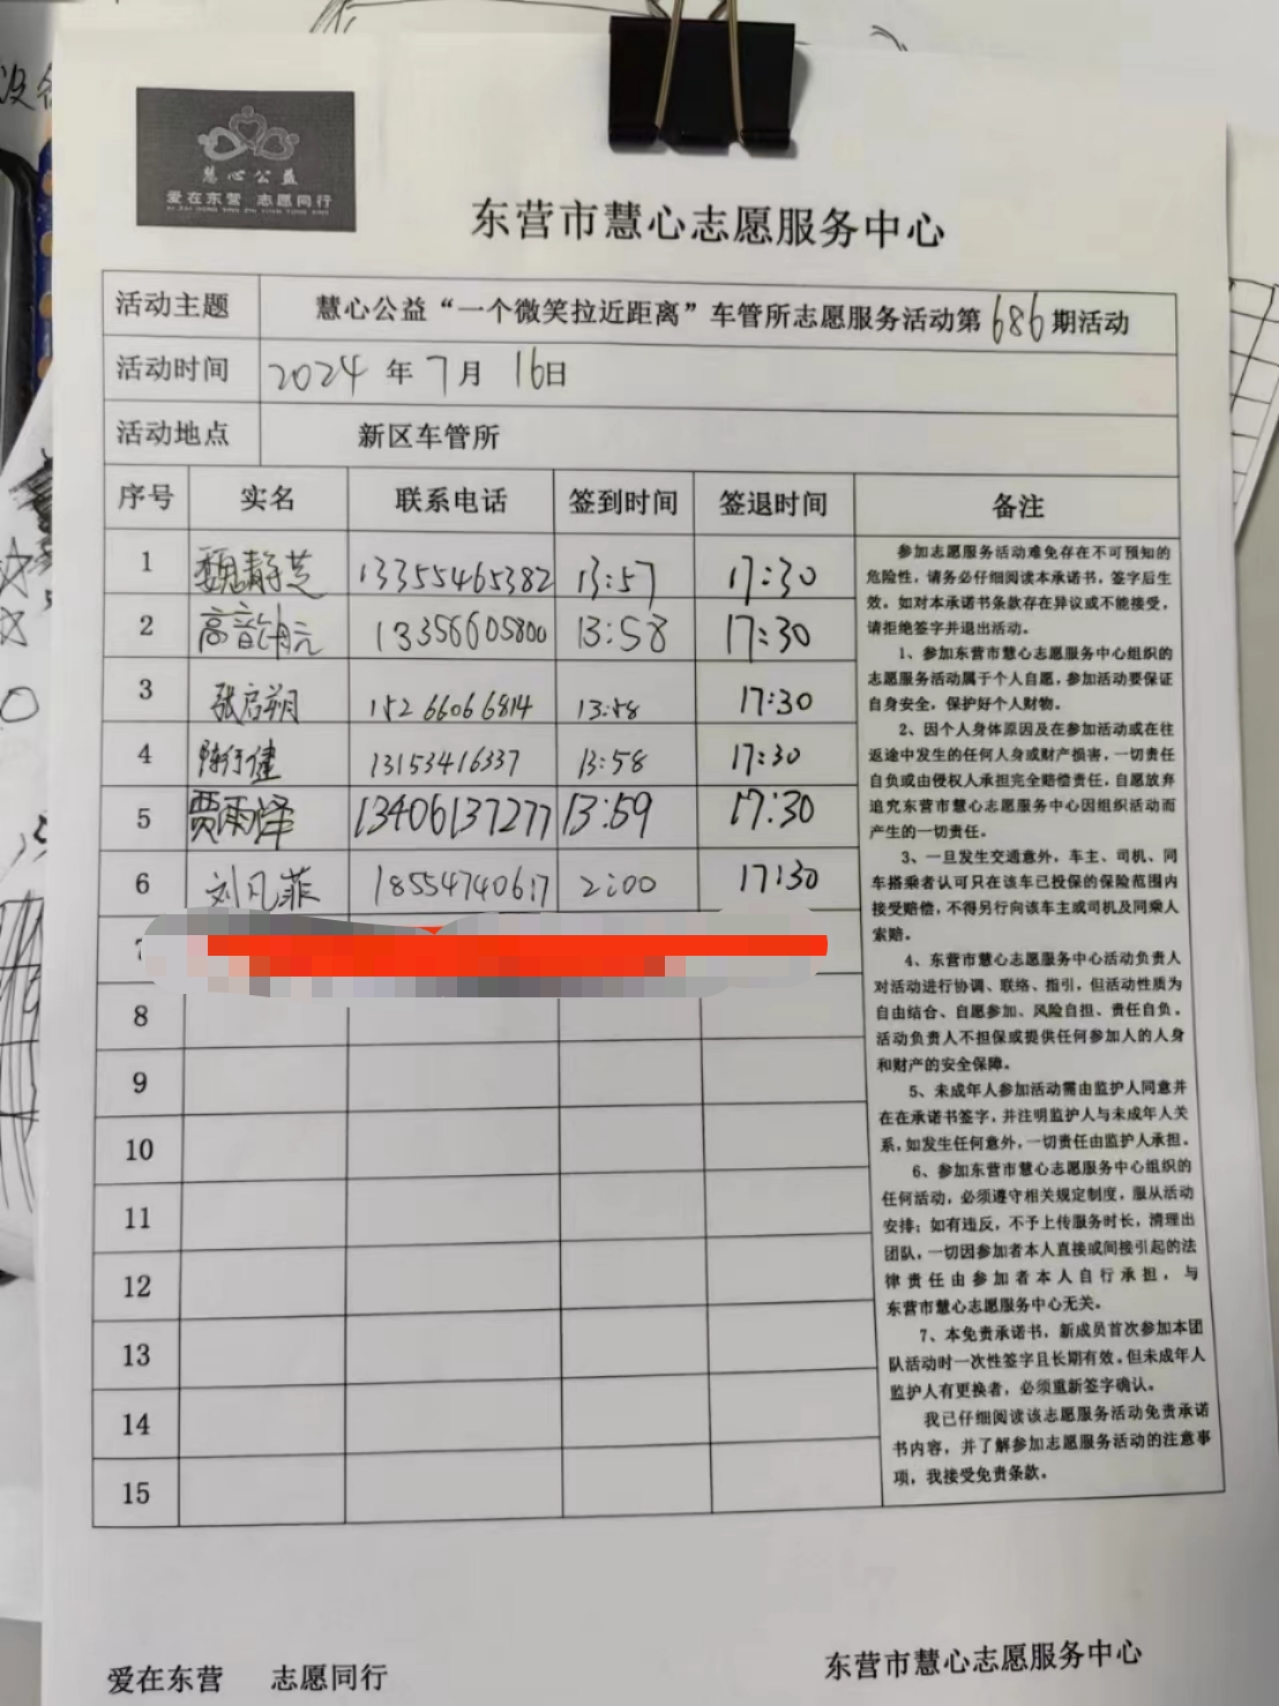 慧心公益
爱在东营 志愿同行
东营市慧心志愿服务中心
活动主题 慧心公益“一个微笑拉近距离”车管所志愿服务活动第686期活动
活动时间 2024年7月16日
活动地点 新区车管所
序号 实名 联系电话 签到时间 签退时间 备注
1 魏静芝 13355465382 13:57 17:30
2 13356605800 13:58 17:30
3 张启朔 15266066814 13:58 17:30
4 陈行健 13153416337 13:58 17:30
5 贾雨泽 13406137277 13:59 17:30
6 刘凡菲 18554740617 2:00 17:30
7
8
9
10
11
12
13
14
15
参加志愿服务活动难免存在不可预知的
危险性，请务必仔细阅读本承诺书，签字后生
效。如对本承诺书条款存在异议或不能接受，
请拒绝签字并退出活动。
1、参加东营市慧心志愿服务中心组织的
志愿服务活动属于个人自愿，参加活动要保证
自身安全，保护好个人财物。
2、因个人身体原因及在参加活动或在往
返途中发生的任何人身或财产损害，一切责任
自负或由侵权人承担完全赔偿责任，自愿放弃
追究东营市慧心志愿服务中心因组织活动而
产生的一切责任。
3、一旦发生交通意外，车主、司机、同
车搭乘者认可只在该车已投保的保险范围内
接受赔偿，不得另行向该车主或司机及同乘人
索赔。
4、东营市慧心志愿服务中心活动负责人
对活动进行协调、联络、指引，但活动性质为
自由结合、自愿参加、风险自担、责任自负。
活动负责人不担保或提供任何参加人的人身
和财产的安全保障。
5、未成年人参加活动需由监护人同意并
在在承诺书签字，并注明监护人与未成年人关
系，如发生任何意外，一切责任由监护人承担。
6、参加东营市慧心志愿服务中心组织的
任何活动，必须遵守相关规定制度，服从活动
安排；如有违反，不予上传服务时长，清理出
团队，一切因参加者本人直接或间接引起的法
律责任由参加者本人自行承担，与
东营市慧心志愿服务中心无关。
7、本免责承诺书，新成员首次参加本团
队活动时一次性签字且长期有效。但未成年人
监护人有更换者，必须重新签字确认。
我已仔细阅读该志愿服务活动免责承诺
书内容，并了解参加志愿服务活动的注意事
项，我接受免责条款。
爱在东营 志愿同行
东营市慧心志愿服务中心